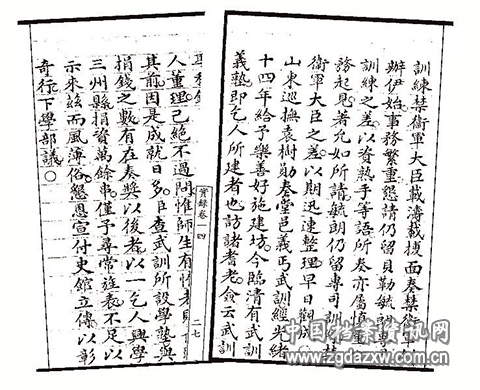 訓練禁衞軍大臣載濤載摶面奏禁衞
辦伊始事務繁重懇請仍留貝勒毓朗專
訓練之差以資熟手等語所奏亦屬愼重
起見著允如所請毓朗仍留專司訓
衞軍大臣之差以期迅速整理早日觀
山東巡撫袁樹勛奏堂邑義丐武訓經光緒
十四年給予樂善好施建坊今臨清有武訓
義塾即乞人所建者也訪諸耆老僉云武訓
實錄卷一四
二七
人董理己絕不過問惟師生有情者則
其前因是成就日多臣查武訓所設學塾與
捐錢之數有在奏奬以後者以一乞人興學
三州縣捐資萬餘串僅予尋常旌表不足以
示來茲而風薄俗懇恩宣付史館立傳以彰
奇行下學部議○
中国档案资讯网
www.zgdazxw.com.cn